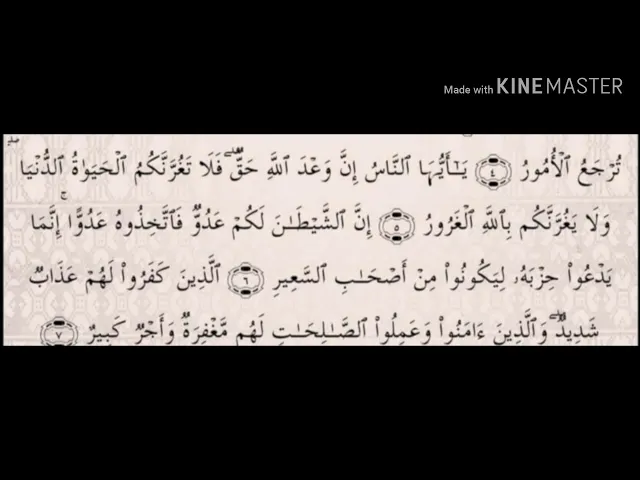 Made with KINEMASTER
تُرْجَعُ ٱلْأُمُورُ ٤ يَـٰٓأَيُّهَا ٱلنَّاسُ إِنَّ وَعْدَ ٱللَّهِ حَقٌّ ۖ فَلَا تَغُرَّنَّكُمُ ٱلْحَيَوٰةُ ٱلدُّنْيَا ۖ
وَلَا يَغُرَّنَّكُم بِٱللَّهِ ٱلْغَرُورُ ٥ إِنَّ ٱلشَّيْطَـٰنَ لَكُمْ عَدُوٌّ فَٱتَّخِذُوهُ عَدُوًّا ۚ إِنَّمَا
يَدْعُوا۟ حِزْبَهُۥ لِيَكُونُوا۟ مِنْ أَصْحَـٰبِ ٱلسَّعِيرِ ٦ ٱلَّذِينَ كَفَرُوا۟ لَهُمْ عَذَابٌ
شَدِيدٌ ۖ وَٱلَّذِينَ ءَامَنُوا۟ وَعَمِلُوا۟ ٱلصَّـٰلِحَـٰتِ لَهُم مَّغْفِرَةٌ وَأَجْرٌ كَبِيرٌ ٧